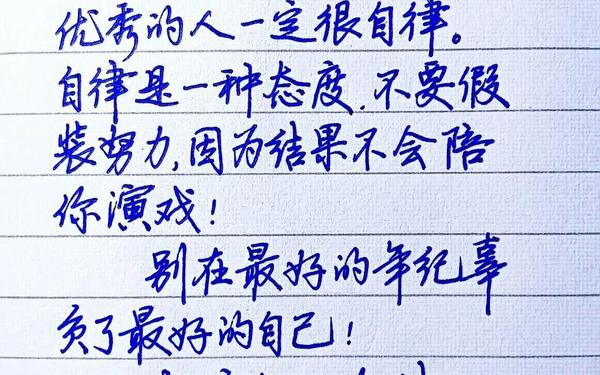 优秀的人一定很自律。
自律是一种态度,不要假
装努力,因为结果不会陪
你演戏!
别在最好的年纪辜
负了最好的自己!